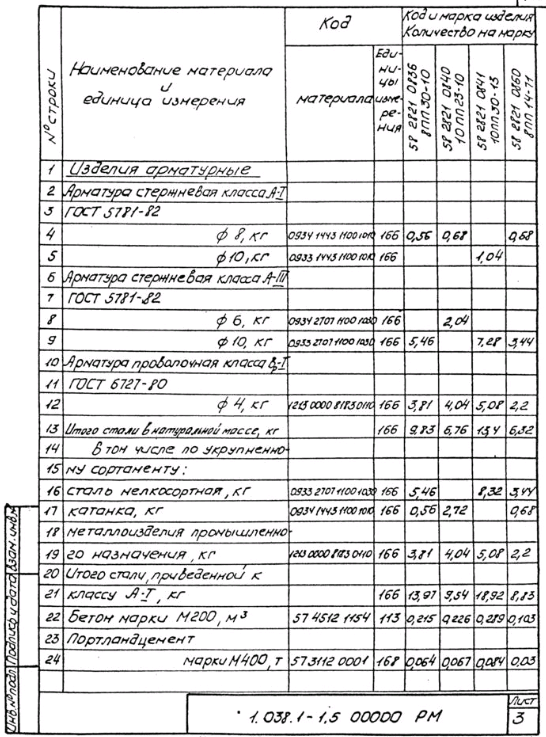 № строки
Наименование материала
и
единица измерения
Код
материала
Еди-
ни-
цы
изме-
ре-
ния
Код и марка изделия
Количество на марку
58 2821 0836
8ПП 30-10
58 2821 0840
10ПП 23-10
58 2821 0841
10ПП 30-13
58 2821 0860
8ПП 14-71
1 Изделия арматурные
2 Арматура стержневая класса А-I
3 ГОСТ 5781-82
4 ф 8, кг 0934 1443 1100 1010 166 0,56 0,68 0,68
5 ф 10, кг 0933 1443 1100 1010 166 1,04
6 Арматура стержневая класса А-III
7 ГОСТ 5781-82
8 ф 6, кг 0934 2707 1100 1030 166 2,04
9 ф 10, кг 0933 2707 1100 1030 166 5,46 7,28 3,44
10 Арматура проволочная класса Вр-I
11 ГОСТ 6727-80
12 ф 4, кг 1213 0000 8183 0110 166 3,81 4,04 5,08 2,2
13 Итого стали в натуральной массе, кг 166 9,83 6,76 13,4 6,32
14 В том числе по укрупненно-
15 му сортаменту:
16 сталь мелкосортная, кг 0933 2707 1100 1030 166 5,46 8,32 3,44
17 катанка, кг 0934 1443 1100 1010 166 0,56 2,72 0,68
18 металлоизделия промышленно-
19 го назначения, кг 1213 0000 8183 0110 166 3,81 4,04 5,08 2,2
20 Итого стали, приведенной к
21 классу А-I, кг 166 13,97 9,54 18,92 8,83
22 Бетон марки М200, м³ 57 4512 1154 113 0,215 0,226 0,289 0,103
23 Портландцемент
24 марки М400, т 57 3112 0001 168 0,064 0,067 0,084 0,03
Инв.№ подл. Подпись и дата Взам. инв.№
1.038.1-1.5 00000 РМ
Лист
3